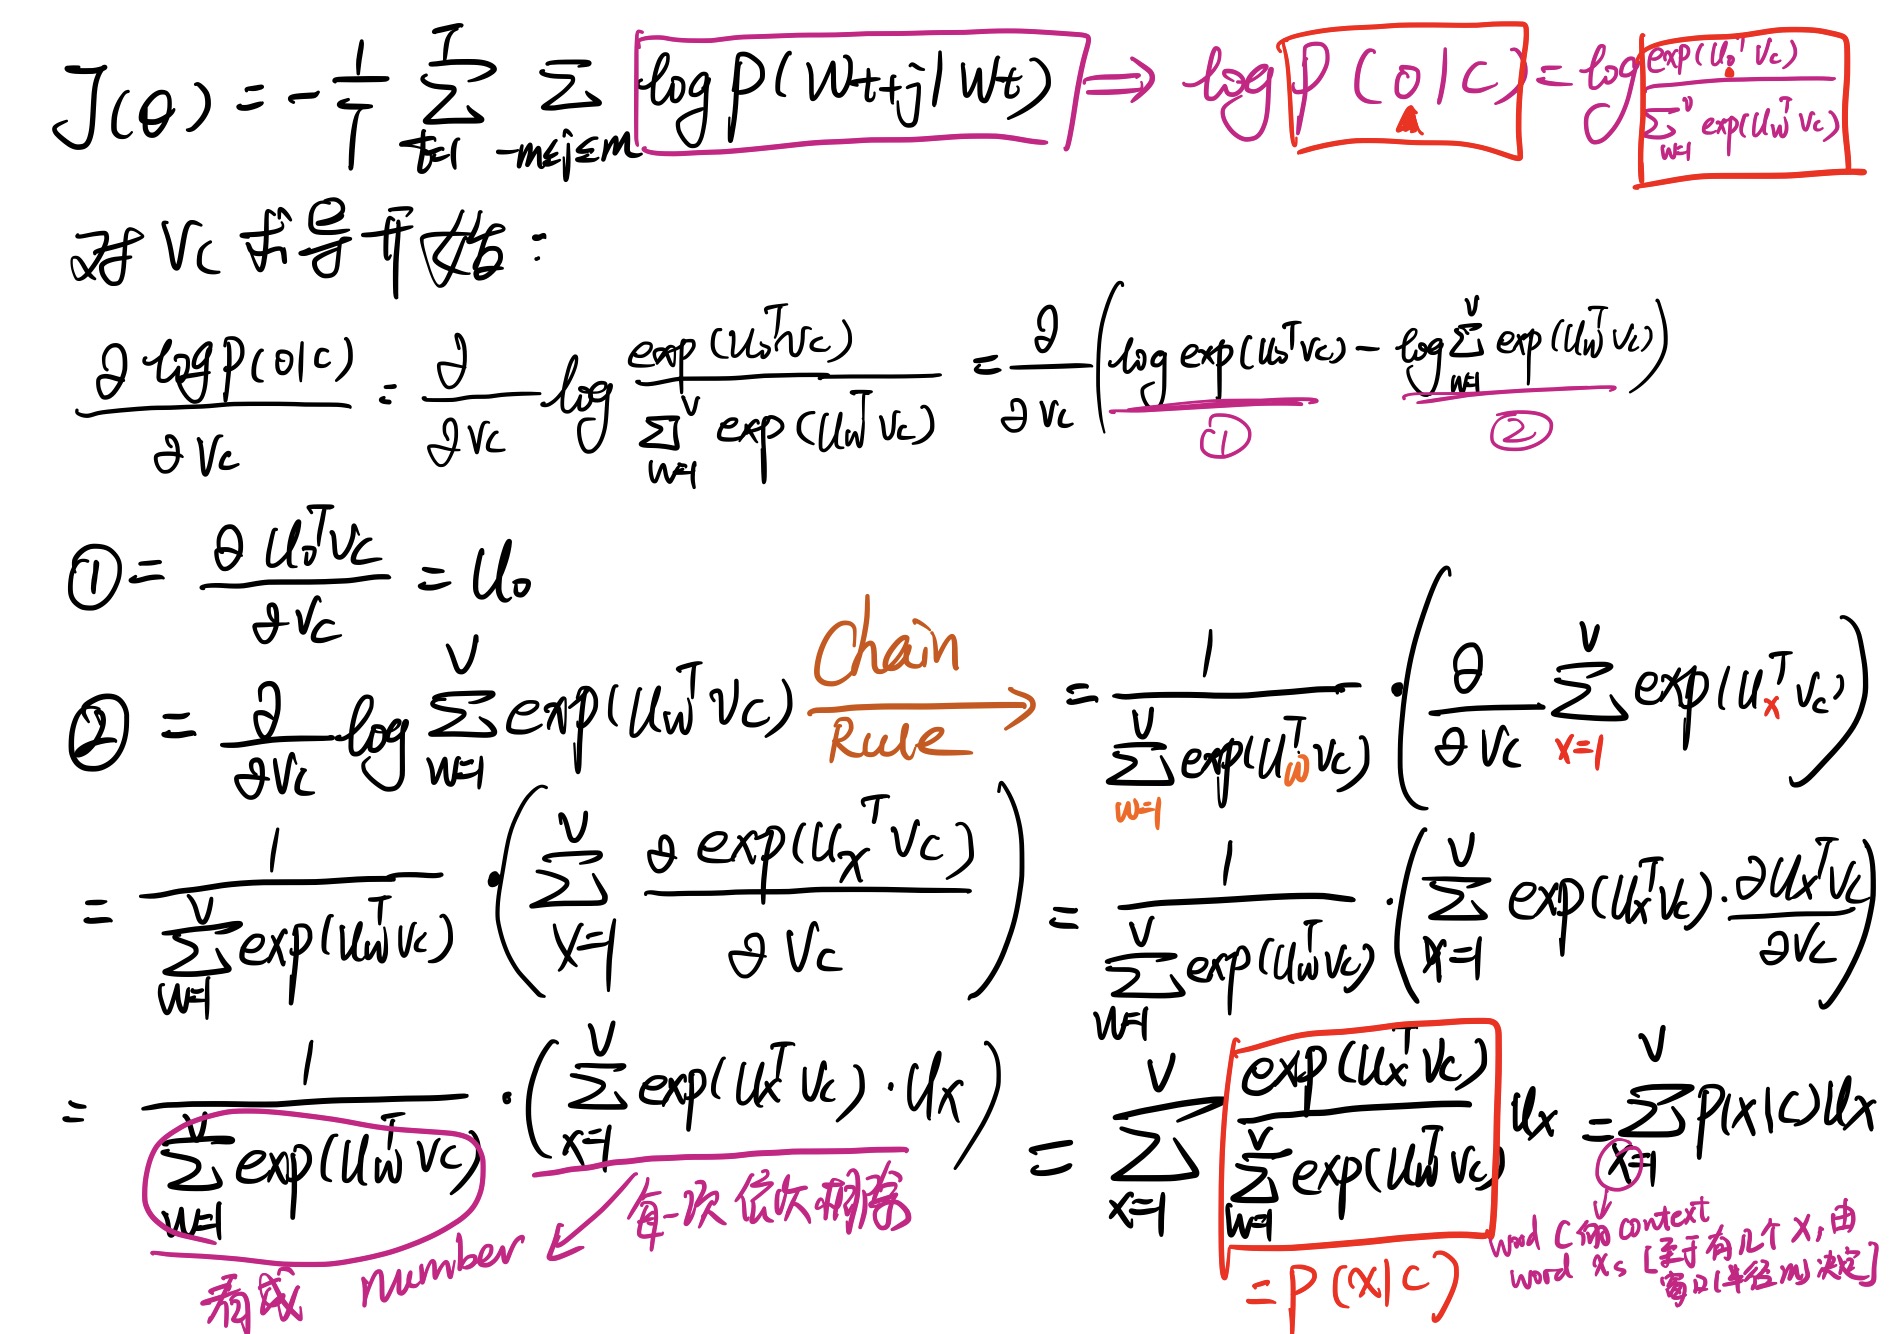 J(θ) = -1/T Σ_{t=1}^{T} Σ_{-m≤j≤m} log P(W_{t+j}|W_t) ⇒ log P(o|c) = log exp(u_o^T v_c) / Σ_{w=1}^{V} exp(u_w^T v_c)
对 V_c 求导开始:
∂ log P(o|c) / ∂V_c = ∂/∂V_c log exp(u_o^T v_c) / Σ_{w=1}^{V} exp(u_w^T v_c) = ∂/∂V_c ( log exp(u_o^T v_c) - log Σ_{w=1}^{V} exp(u_w^T v_c) )
① ②
① = ∂ u_o^T v_c / ∂V_c = u_o
② = ∂/∂V_c log Σ_{w=1}^{V} exp(u_w^T v_c) Chain Rule → = 1 / Σ_{w=1}^{V} exp(u_w^T v_c) · ( ∂/∂V_c Σ_{x=1}^{V} exp(u_x^T v_c) )
= 1 / Σ_{w=1}^{V} exp(u_w^T v_c) · ( Σ_{x=1}^{V} ∂ exp(u_x^T v_c) / ∂V_c ) = 1 / Σ_{w=1}^{V} exp(u_w^T v_c) · ( Σ_{x=1}^{V} exp(u_x^T v_c) · ∂u_x^T v_c / ∂V_c )
= 1 / Σ_{w=1}^{V} exp(u_w^T v_c) · ( Σ_{x=1}^{V} exp(u_x^T v_c) · u_x ) = Σ_{x=1}^{V} exp(u_x^T v_c) / Σ_{w=1}^{V} exp(u_w^T v_c) u_x = Σ_{x=1}^{V} P(x|c) u_x
看成 number
每一次依次
= P(x|c)
word c 的 context
word xs [至于有几个 x, 由
窗口(半径m)决定]